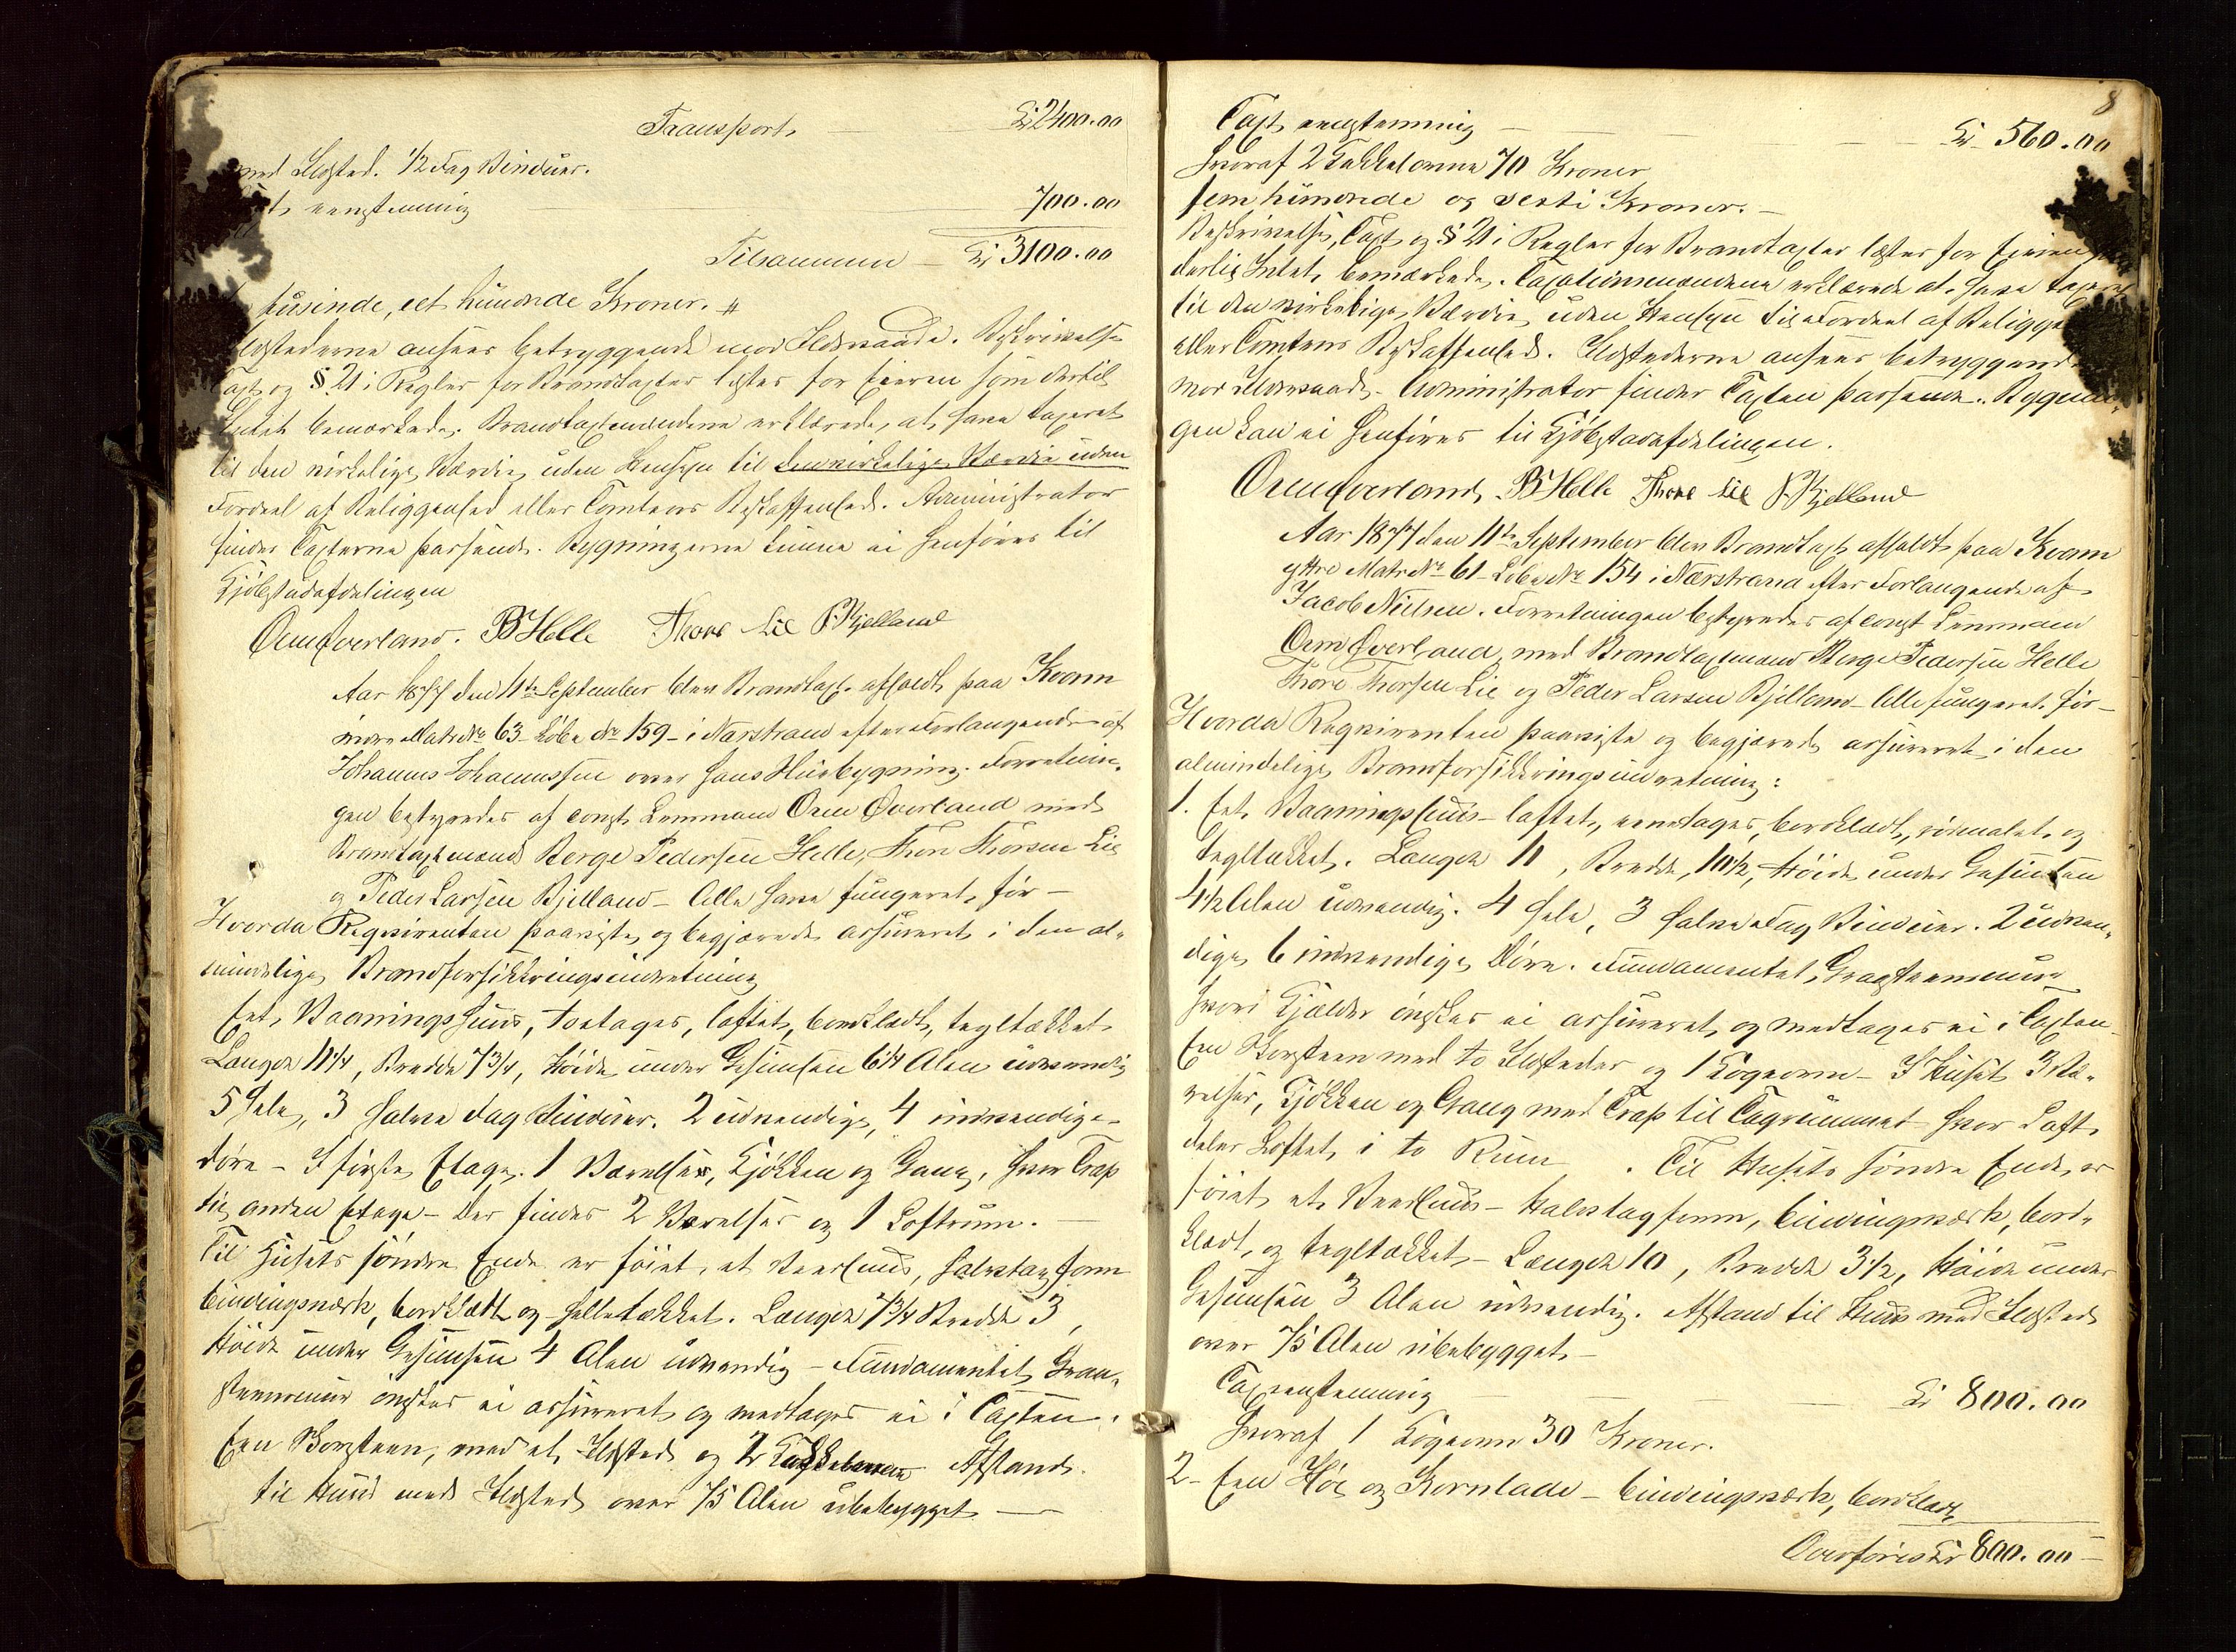 Transport Kr 2400.00
med Ildsted. 1/2 Fag Vinduer.
eenstemmig 700.00
Tilsammen Kr 3100.00
tusinde, eet hundrede Kroner. #
Ildstederne ansees betryggende mod Ildsvaade. Beskrivelse
Taxt og § 21 i Regler for Brandtaxter læstes for Eieren som dertil
Intet bemærkede. Brandtaxtmændene erklærede, at have taxeret
til den virkelige Værdie uden Hensyn til den virkelige Værdie uden
Fordeel af Beliggenhed eller Tomtens Beskaffenhed. Administrator
finder Taxterne passende. Bygningerne kunne ei henføres til
Kjøbstadafdelingen
Orm Øverland. B Helle Thore Lie P. Bjelland
Aar 1877 den 11te September blev Brandtaxt afholdt paa Kvam
indre Matr No 63 Løbe No 159 i Nærstrand efter Forlangende af
Johannes Johannessen over hans Huusbygning. Forretnin-
gen bestyredes af const. Lensmand Orm Øverland med
Brandtaxtmænd Berge Pedersen Helle, Thore Thorsen Lie
og Peder Larsen Bjelland – Alle have fungeret før –
Hvorda Reqvirenten paaviste og begjærede assureret i den al-
mindelige Brandforsikkringsindretning
Eet Vaaningshuus, toetages, loftet, bordklædt, tegltækket
Længde 11 1/4, Bredde 7 3/4, Høide under Gesimsen 6 1/4 Alen udvendig
5 hele, 3 halve Fag Vinduer. 2 udvendige, 4 indvendige
Døre – I første Etage. 1 Værelse, Kjøkken og Gang, hvor Trap
til anden Etage – Der findes 2 Værelser og 1 Loftrum. –
Til Husets søndre Ende er føiet et Veerhuus, halvtagform
bindingsværk, bordklædt og helletækket. Længde 7 3/4 Bredde 3,
Høide under Gesimsen 4 Alen udvendig – Fundamentet Graa-
steensmuur ønskes ei assureret og medtages ei i Taxten.
Een Skorsteen, med et Ildsted og 2 Afstand
til Huus med Ildsted over 75 Alen ubebygget –
8
Taxt eenstemmig Kr 560.00
hvoraf 2 Kakkelovne 70 Kroner
fem hundrede og sexti Kroner. –
Beskrivelse, Taxt og § 21 i Regler for Brandtaxter læstes for Eieren
dertil Intet bemærkede. Taxationsmændene erklærede at have taxeret
til den virkelige Værdie uden Hensyn til Fordeel af
eller Tomtens Beskaffenhed. Ildstederne ansees betryggende
mod Ildsvaade. Administrator finder Taxten passende. Bygnin-
gen kan ei henføres til Kjøbstadafdelingen.
Orm Øverland, B Helle Thore Lie P. Bjelland
Aar 1877 den 11te September blev Brandtaxt afholdt paa Kvam
yttre Matr No 61 Løbe No 154 i Nærstrand efter Forlangende af
Jacob Nielsen. Forretningen bestyredes af const Lensmand
Orm Øverland, med Brandtaxtmænd Berge Pedersen Helle
Thore Thorsen Lie og Peder Larsen Bjelland – Alle fungeret før –
Hvorda Reqvirenten paaviste og begjærede assureret i den
almindelige Brandforsikkringsindretning:
1. Eet Vaaningshuus – loftet, eenetages, bordklædt, rødmalet og
tegltækket. Længde 11, Bredde, 10 1/2, Høide under Gesimsen
4 1/2 Alen udvendig. 4 hele, 3 halve Fag Vinduer. 2 udven-
dige, 6 indvendige Døre. Fundamentet, Graasteensmuur
hvori Kjælder ønskes ei assureret og medtages ei i Taxten
Een Skorsteen med to Ildsteder og 1 Kogeovn – I Huset 3 Væ-
relser, Kjøkken og Gang med Trap til Tagrummet hvor Loft
deler Loftet i to Rum. Til Husets søndre Ende er
føiet et Veerhuus – Halvtagform, bindingsværk, bord-
klædt, og tegltækket – Længde 10, Bredde 3 1/2, Høide under
Gesimsen 3 Alen udvendig. Afstand til Huus med Ildsted
over 75 Alen ubebygget –
Taxt eenstemmig Kr 800.00
hvoraf 1 Kogeovn 30 Kroner.
2 – Een Høe og Kornlade – bindingsværk, bordklædt
Overføres Kr 800.00 –